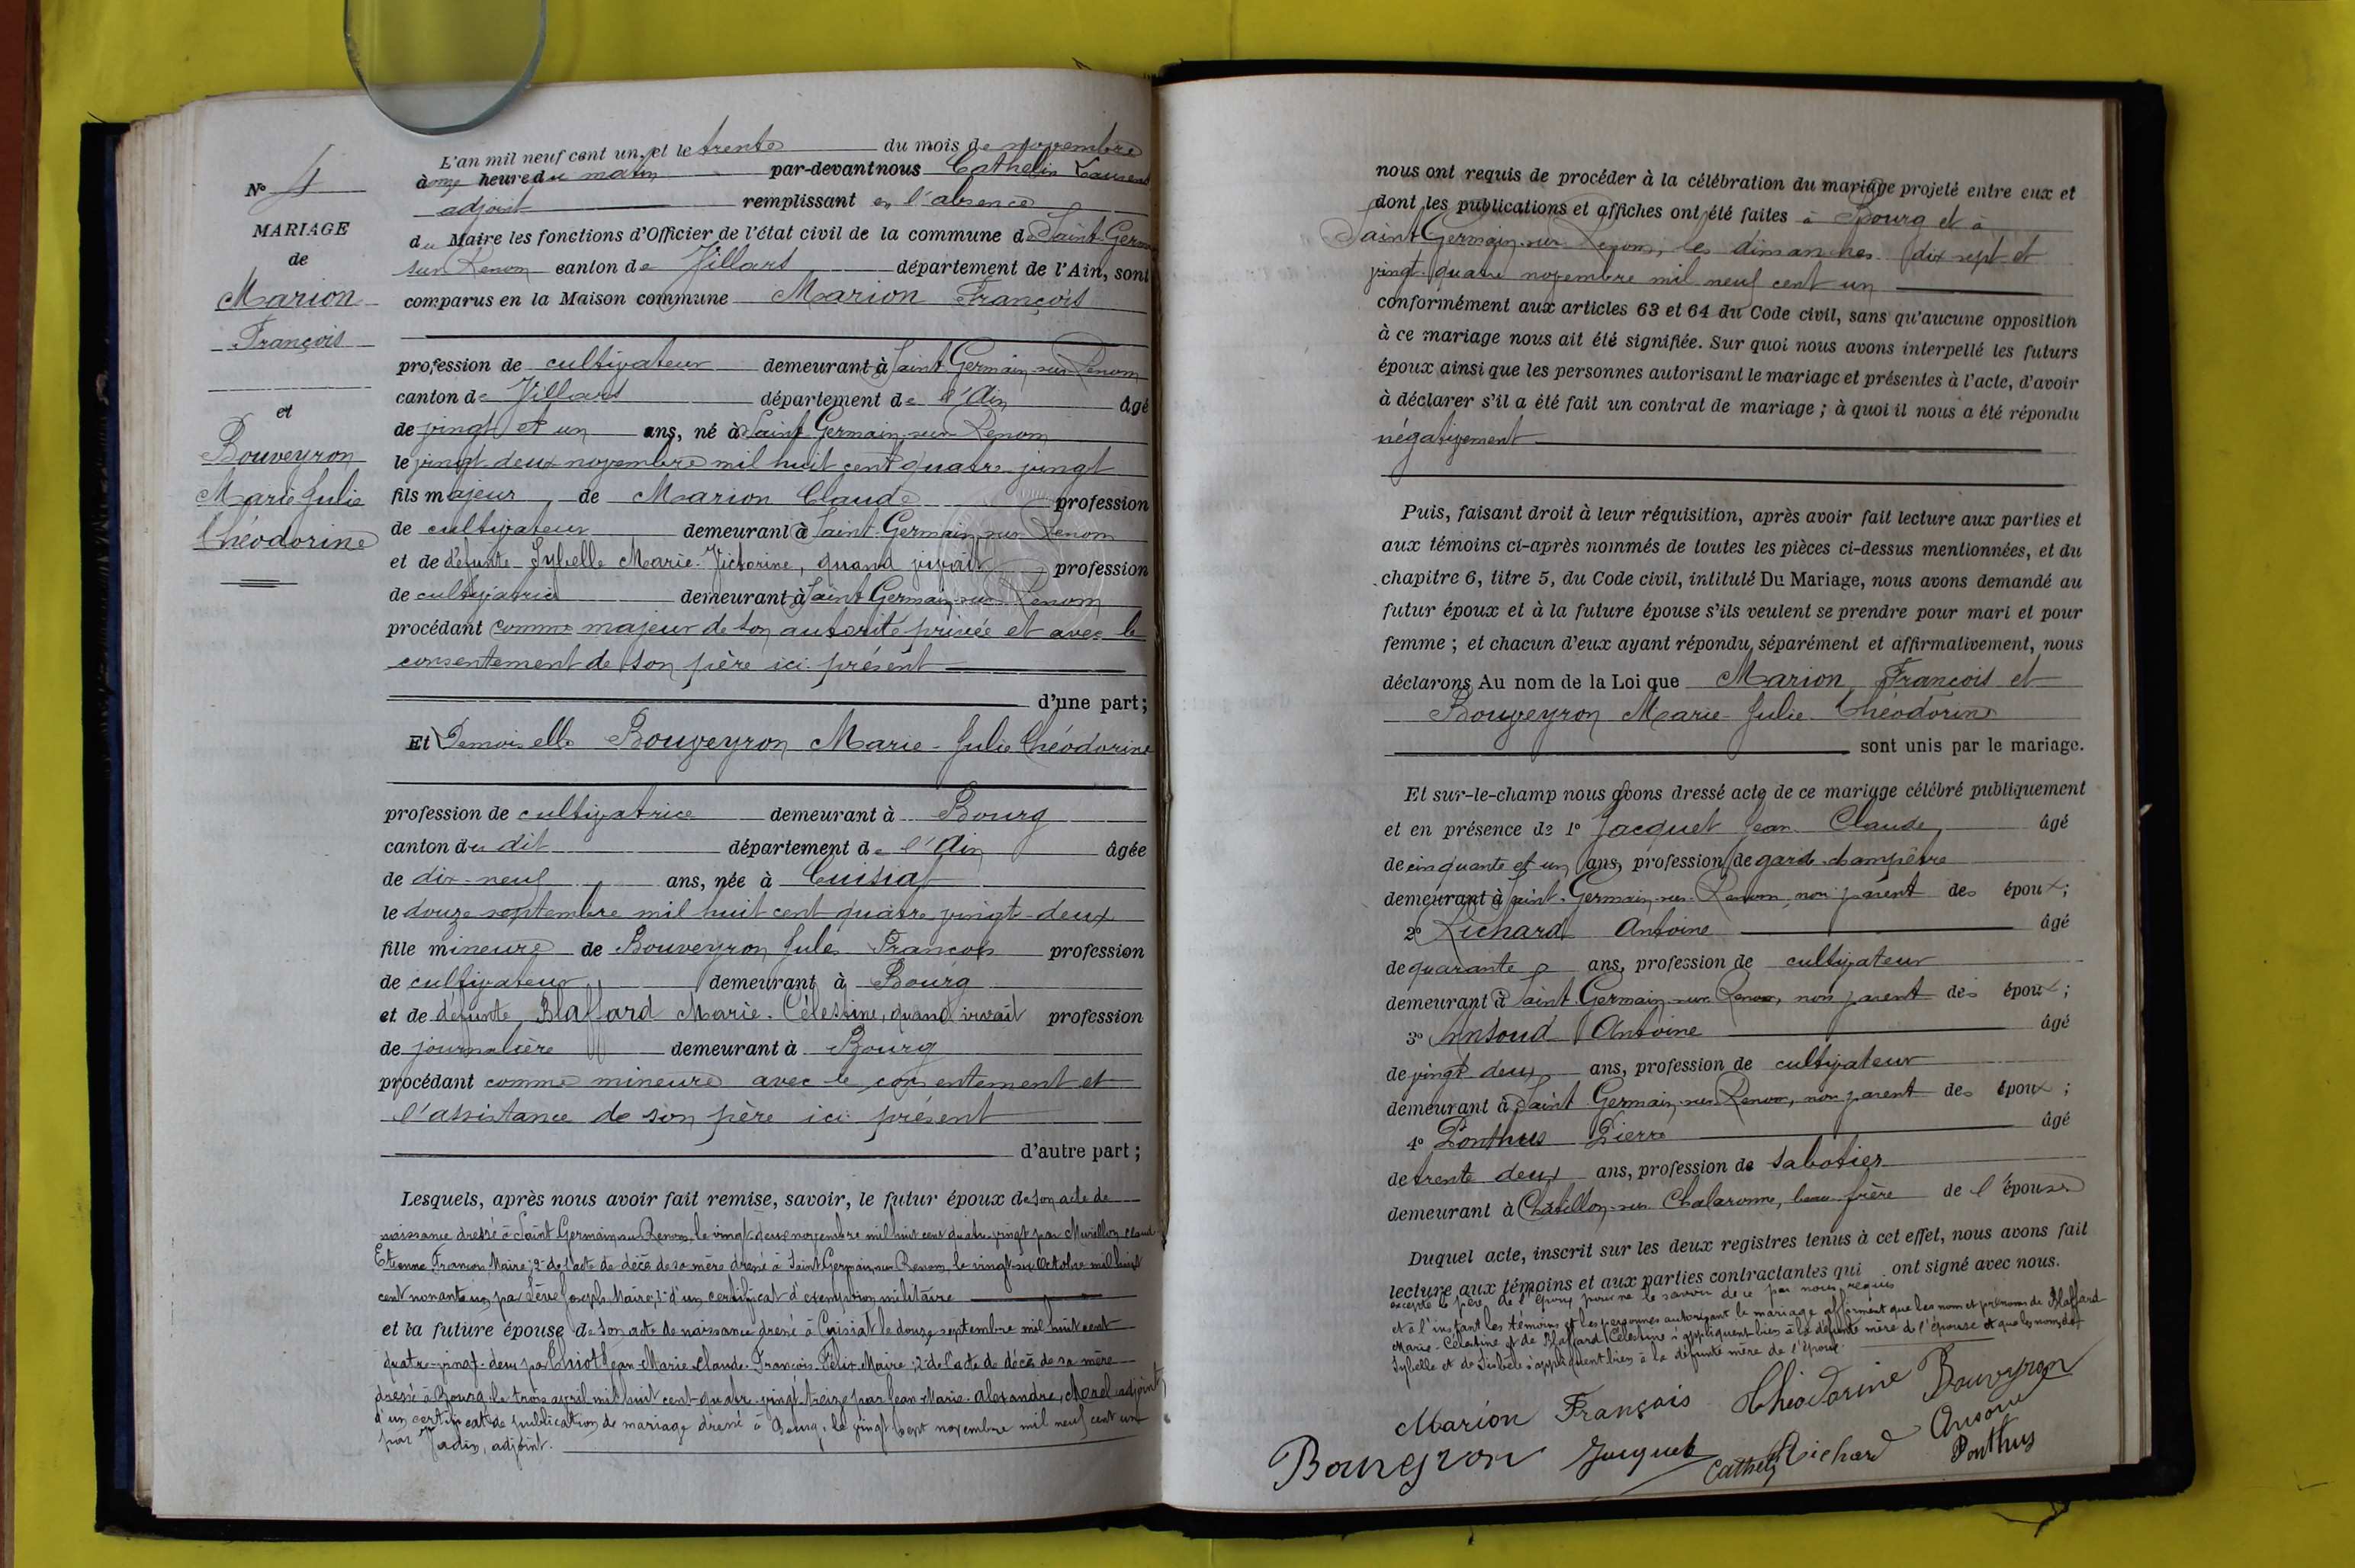 N° 4
MARIAGE
de
Marion
François
et
Bouveyron
Marie Julie
Théodorine
L'an mil neuf cent un, et le trente du mois de novembre
à onze heure du matin par-devant nous Cathelin Laurent
adjoint remplissant en l'absence
du Maire les fonctions d'Officier de l'état civil de la commune de Saint-Germain
sur Renom canton de Villars département de l'Ain, sont
comparus en la Maison commune Marion François
profession de cultivateur demeurant à Saint Germain-sur-Renom
canton de Villars département de l'Ain âgé
de vingt et un ans, né à Saint Germain-sur-Renom
le vingt-deux novembre mil huit cent quatre-vingt
fils majeur de Marion Claude profession
de cultivateur demeurant à Saint-Germain-sur-Renom
et de défunte Sybelle Marie-Victorine, quand vivait profession
de cultivatrice demeurant à Saint Germain-sur-Renom
procédant comme majeur de son autorité privée et avec le
consentement de son père ici présent
d'une part;
Et Demoiselle Bouveyron Marie-Julie Théodorine
profession de cultivatrice demeurant à Bourg
canton du dit département de l'Ain âgée
de dix-neuf ans, née à Cuisiat
le douze septembre mil huit cent quatre-vingt-deux
fille mineure de Bouveyron Jules François profession
de cultivateur demeurant à Bourg
et de défunte Blaffard Marie-Célestine, quand vivait profession
de journalière demeurant à Bourg
procédant comme mineure avec le consentement et
l'assistance de son père ici présent
d'autre part;
Lesquels, après nous avoir fait remise, savoir, le futur époux de son acte de
naissance dressé à Saint Germain-sur-Renom, le vingt-deux novembre mil huit cent quatre-vingt par
Etienne François Maire; 2° de l'acte de décès de sa mère dressé à Saint Germain-sur-Renom, le vingt-six Octobre mil huit
cent nonante un, par Joseph, Maire; 3° d'un certificat d'exemption militaire
et la future épouse de son acte de naissance dressé à Cuisiat le douze septembre mil huit cent
quatre-vingt-deux par Jean-Marie-Claude-François-Félix, Maire; 2° de l'acte de décès de sa mère
dressé à Bourg, le trois avril mil huit cent-quatre-vingt-treize par Jean-Marie-Alexandre, Morel adjoint
d'un certificat de publication de mariage dressé à Bourg, le vingt-sept novembre mil neuf cent un
par adjoint.
nous ont requis de procéder à la célébration du mariage projeté entre eux et
dont les publications et affiches ont été faites à Bourg et à
Saint-Germain-sur-Renom, les dimanches dix sept et
vingt-quatre novembre mil neuf cent un
conformément aux articles 63 et 64 du Code civil, sans qu'aucune opposition
à ce mariage nous ait été signifiée. Sur quoi nous avons interpellé les futurs
époux ainsi que les personnes autorisant le mariage et présentes à l'acte, d'avoir
à déclarer s'il a été fait un contrat de mariage; à quoi il nous a été répondu
négativement
Puis, faisant droit à leur réquisition, après avoir fait lecture aux parties et
aux témoins ci-après nommés de toutes les pièces ci-dessus mentionnées, et du
chapitre 6, titre 5, du Code civil, intitulé Du Mariage, nous avons demandé au
futur époux et à la future épouse s'ils veulent se prendre pour mari et pour
femme; et chacun d'eux ayant répondu séparément et affirmativement, nous
déclarons Au nom de la Loi que Marion François et
Bouveyron Marie-Julie-Théodorine
sont unis par le mariage.
Et sur-le-champ nous avons dressé acte de ce mariage célébré publiquement
et en présence de 1° Jacquet Jean Claude, âgé
de cinquante et un ans, profession de garde-champêtre
demeurant à Saint-Germain-sur-Renom, non parent des époux;
2° Richard Antoine âgé
de quarante ans, profession de cultivateur
demeurant à Saint-Germain-sur-Renom, non parent des époux;
3° Ansoud Antoine âgé
de vingt deux ans, profession de cultivateur
demeurant à Saint Germain-sur-Renom, non parent des époux;
4° Ponthus Pierre âgé
de trente deux ans, profession de sabotier
demeurant à Châtillon-sur-Chalaronne, beau-frère de l'épouse
Duquel acte, inscrit sur les deux registres tenus à cet effet, nous avons fait
lecture aux témoins et aux parties contractantes qui ont signé avec nous.
excepté le père de l'époux pour ne le savoir de ce par nous requis
et à l'instant les témoins et les personnes autorisant le mariage affirment que les nom et prénoms de Blaffard
Marie-Célestine et de Blaffard Célestine s'appliquent bien à la défunte mère de l'épouse et que les noms de
Sybelle et de s'appliquent bien à la défunte mère de l'époux.
Marion François Théodorine Bouveyron
Bouveyron Jacquet Cathelin Richard Ansoud
Ponthus